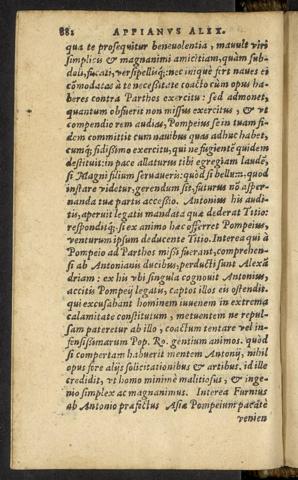 882 APPIANVS ALEX.
qua te prosequitur beneuolentia, mauult viri
simplicis & magnanimi amicitiam, quàm sub-
doli, fucati, versipellisq́;: nec iniquè fert naues ei
cōmodatas à te necessitate coacto cùm opus ha-
beres contra Parthos exercitu: sed admonet,
quantum obfuerit non missus exercitus, & vt
compendio rem audias, Pompeius se in tuam fi-
dem committit cum nauibus quas adhuc habet,
cumq́; fidissimo exercitu, qui ne fugientē quidem
destituit: in pace allaturus tibi egregiam laudē,
si Magni filium seruaueris: quòd si bellum, quod
instare videtur, gerendum sit, futurus nō asper-
nanda tuæ partis accessio. Antonius his audi-
tis, aperuit legatis mandata quæ dederat Titio:
responditq́;, si ex animo hæc offerret Pompeius,
venturum ipsum deducente Titio. Interea qui à
Pompeio ad Parthos missi fuerant, comprehen-
si ab Antonianis ducibus, perducti sunt Alexā
driam: ex his vbi singula cognouit Antonius,
accitis Pompeij legatis, captos illos eis ostendit.
qui excusabant hominem iuuenem in extrema
calamitate constitutum, metuentem ne repul-
sam pateretur ab illo, coactum tentare vel in-
fensissimarum Pop. Ro. gentium animos. quòd
si compertam habuerit mentem Antonij, nihil
opus fore alijs solicitationibus & artibus. id ille
credidit, vt homo minimè malitiosus, & inge-
nio simplex ac magnanimus. Interea Furnius
ab Antonio præfectus Asiæ Pompeium pacatè
venien